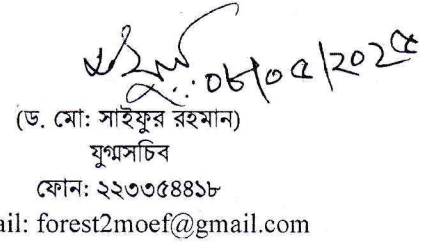 ০৮/০৫/২০২৫
(ড. মো: সাইফুর রহমান)
যুগ্মসচিব
ফোন: ২২৩৩৫৪৪১৮
ail: forest2moef@gmail.com